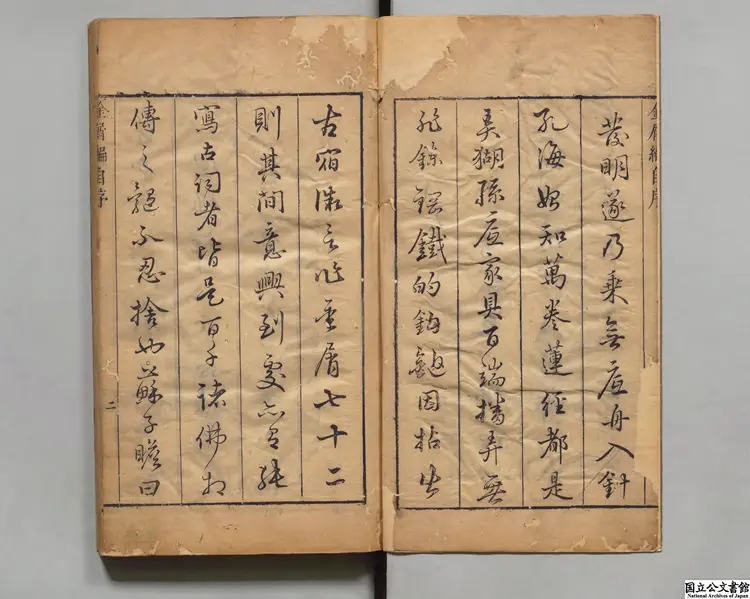 金屑編自序
發明遂乃乘無底舟入針
孔海始知萬卷蓮經都是
弄猢猻底家具百端播弄無
鐵的因拈出
古宿微言作金屑七十二
則其間意興到處亦
寫古詞者皆是百千諸佛相
傳之髓不忍捨也蘇子瞻曰
金屑編自序
二
国立公文書館
National Archives of Japan